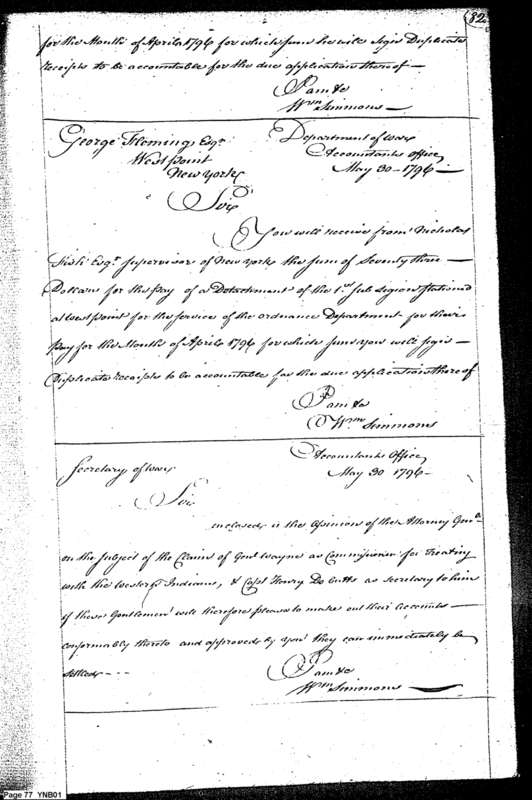 82
for the Month of April 1796 for which sum he will sign Duplicate
receipts to be accountable for the due application thereof —
I am &c
Wm Simmons —
George Fleming Esqr
Westpoint
New York
Department of War
Accountants Office
May 30 — 1796 —
Sir
You will receive from Nicholas
Fish Esqr supervisor of New York the sum of Seventy three —
Dollars for the pay of a Detachment of the 1st Sub Legion stationed
at Westpoint for the service of the ordnance Department for their
pay for the Month of April 1796 for which sum you will sign —
Duplicate receipts to be accountable for the due application thereof
I am &c
Wm Simmons
Secretary of War
Accountants Office
May 30 1796 —
Sir
enclosed is the Opinion of the Attorney Genl
on the subject of the Claims of Genl Wayne as Commissioner for Treating
with the Western Indians, & Capt Henry De Butts as secretary to him
if these Gentlemen will therefore please to make out their Accounts —
conformably thereto and approved by you they can immediately be
settled - - -
I am &c
Wm Simmons
Page 77 YNB01